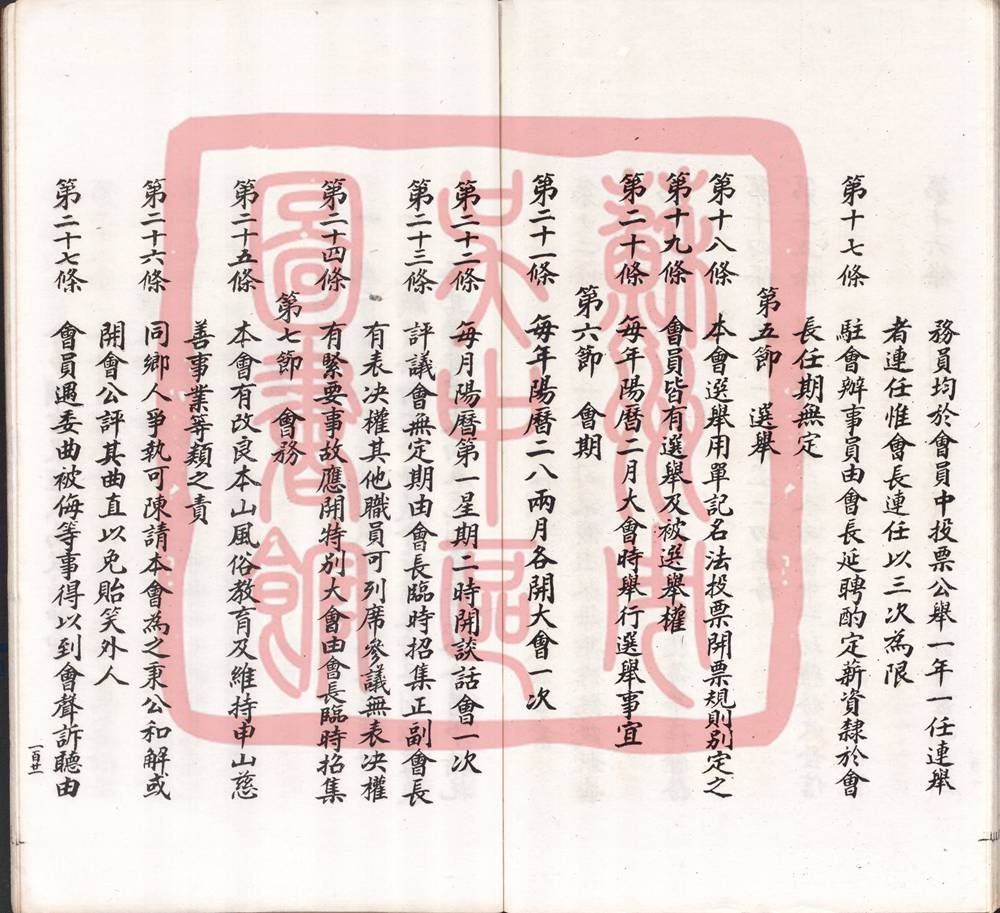 務員均於會員中投票公舉一年一任連舉
者連任惟會長連任以三次為限
第十七條 駐會辦事員由會長延聘酌定薪資隸於會
長任期無定
第五節 選舉
第十八條 本會選舉用單記名法投票開票規則別定之
第十九條 會員皆有選舉及被選舉權
第二十條 每年陽曆二月大會時舉行選舉事宜
第六節 會期
第二十一條 每年陽曆二八兩月各開大會一次
第二十二條 每月陽曆第一星期二時開談話會一次
第二十三條 評議會無定期由會長臨時招集正副會長
有表決權其他職員可列席參議無表決權
第二十四條 有緊要事故應開特別大會由會長臨時招集
第七節 會務
第二十五條 本會有改良本山風俗教育及維持申山慈
善事業等類之責
第二十六條 同鄉人爭執可陳請本會為之秉公和解或
開會公評其曲直以免貽笑外人
第二十七條 會員遇委曲被侮等事得以到會聲訴聽由
一百廿一
蘇州市
吳中區
圖書館